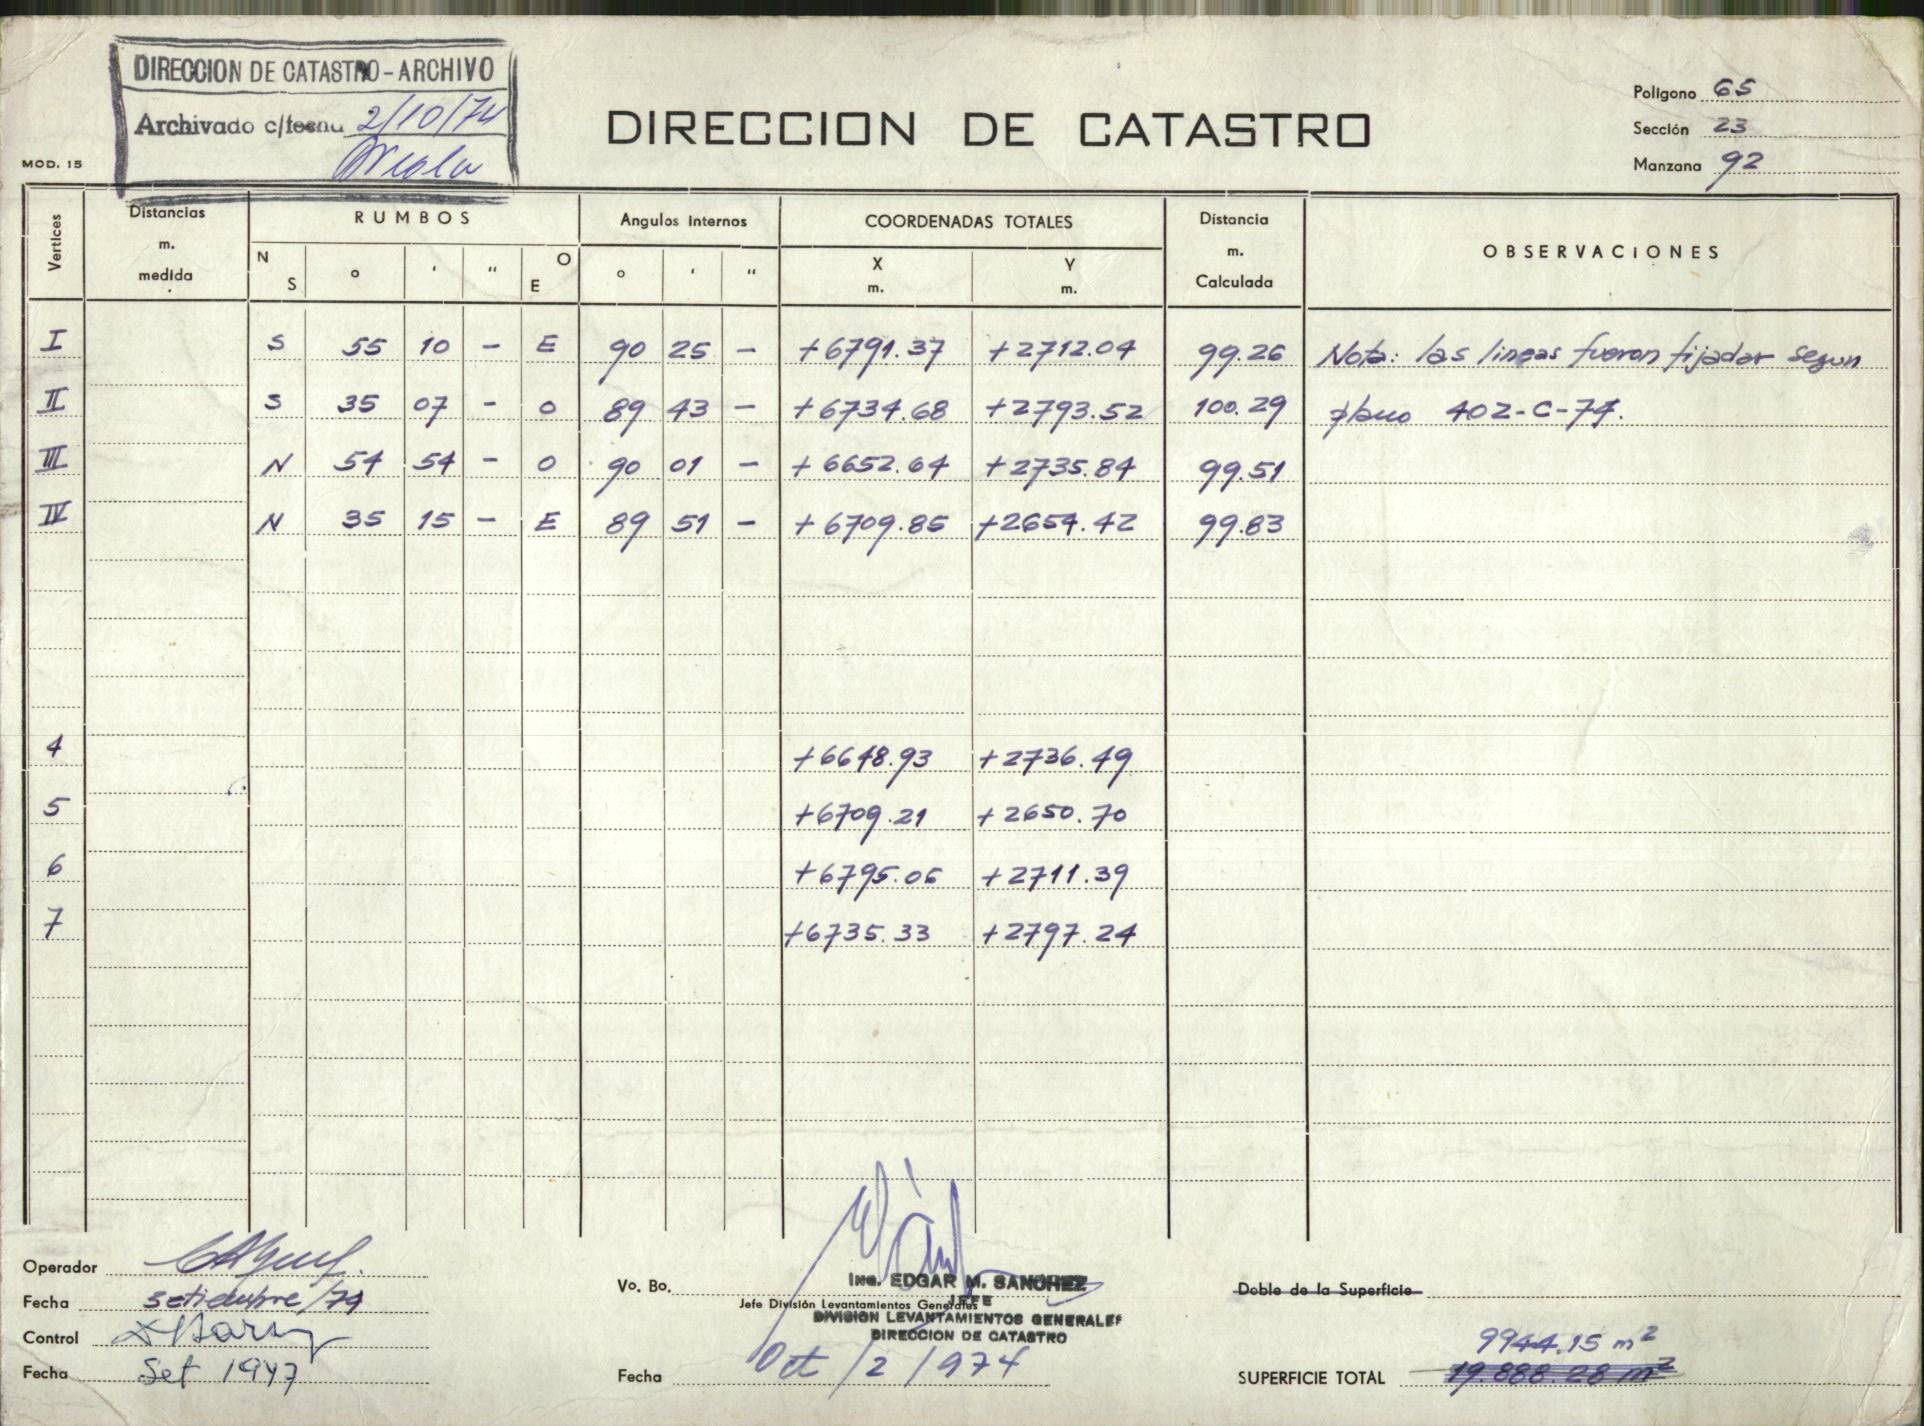 DIRECCION DE CATASTRO - ARCHIVO
Archivado c/fecha 2/10/74
MOD. 15
DIRECCION DE CATASTRO
Polígono 65
Sección 23
Manzana 92
Vertices
Distancias m. medida
RUMBOS
Angulos Internos
COORDENADAS TOTALES
Distancia m. Calculada
OBSERVACIONES
N S ° ' " O E ° ' " X m. Y m.
I S 55 10 - E 90 25 - +6791.37 +2712.04 99.26 Nota: las lineas fueron fijadar segun
II S 35 07 - O 89 43 - +6734.68 +2793.52 100.29 plano 402-C-74.
III N 54 54 - O 90 01 - +6652.64 +2735.84 99.51
IV N 35 15 - E 89 51 - +6709.85 +2654.42 99.83
4 +6648.93 +2736.49
5 +6709.21 +2650.70
6 +6795.06 +2711.39
7 +6735.33 +2797.24
Operador
Fecha setiembre/74
Control
Fecha Set 1947
Vo. Bo.
Ing. EDGAR M. SANCHEZ
Jefe División Levantamientos Generales
JEFE
DIVISION LEVANTAMIENTOS GENERALES
DIRECCION DE CATASTRO
Fecha Oct/2/974
Doble de la Superficie
9944.15 m²
SUPERFICIE TOTAL 19.888.28 m²